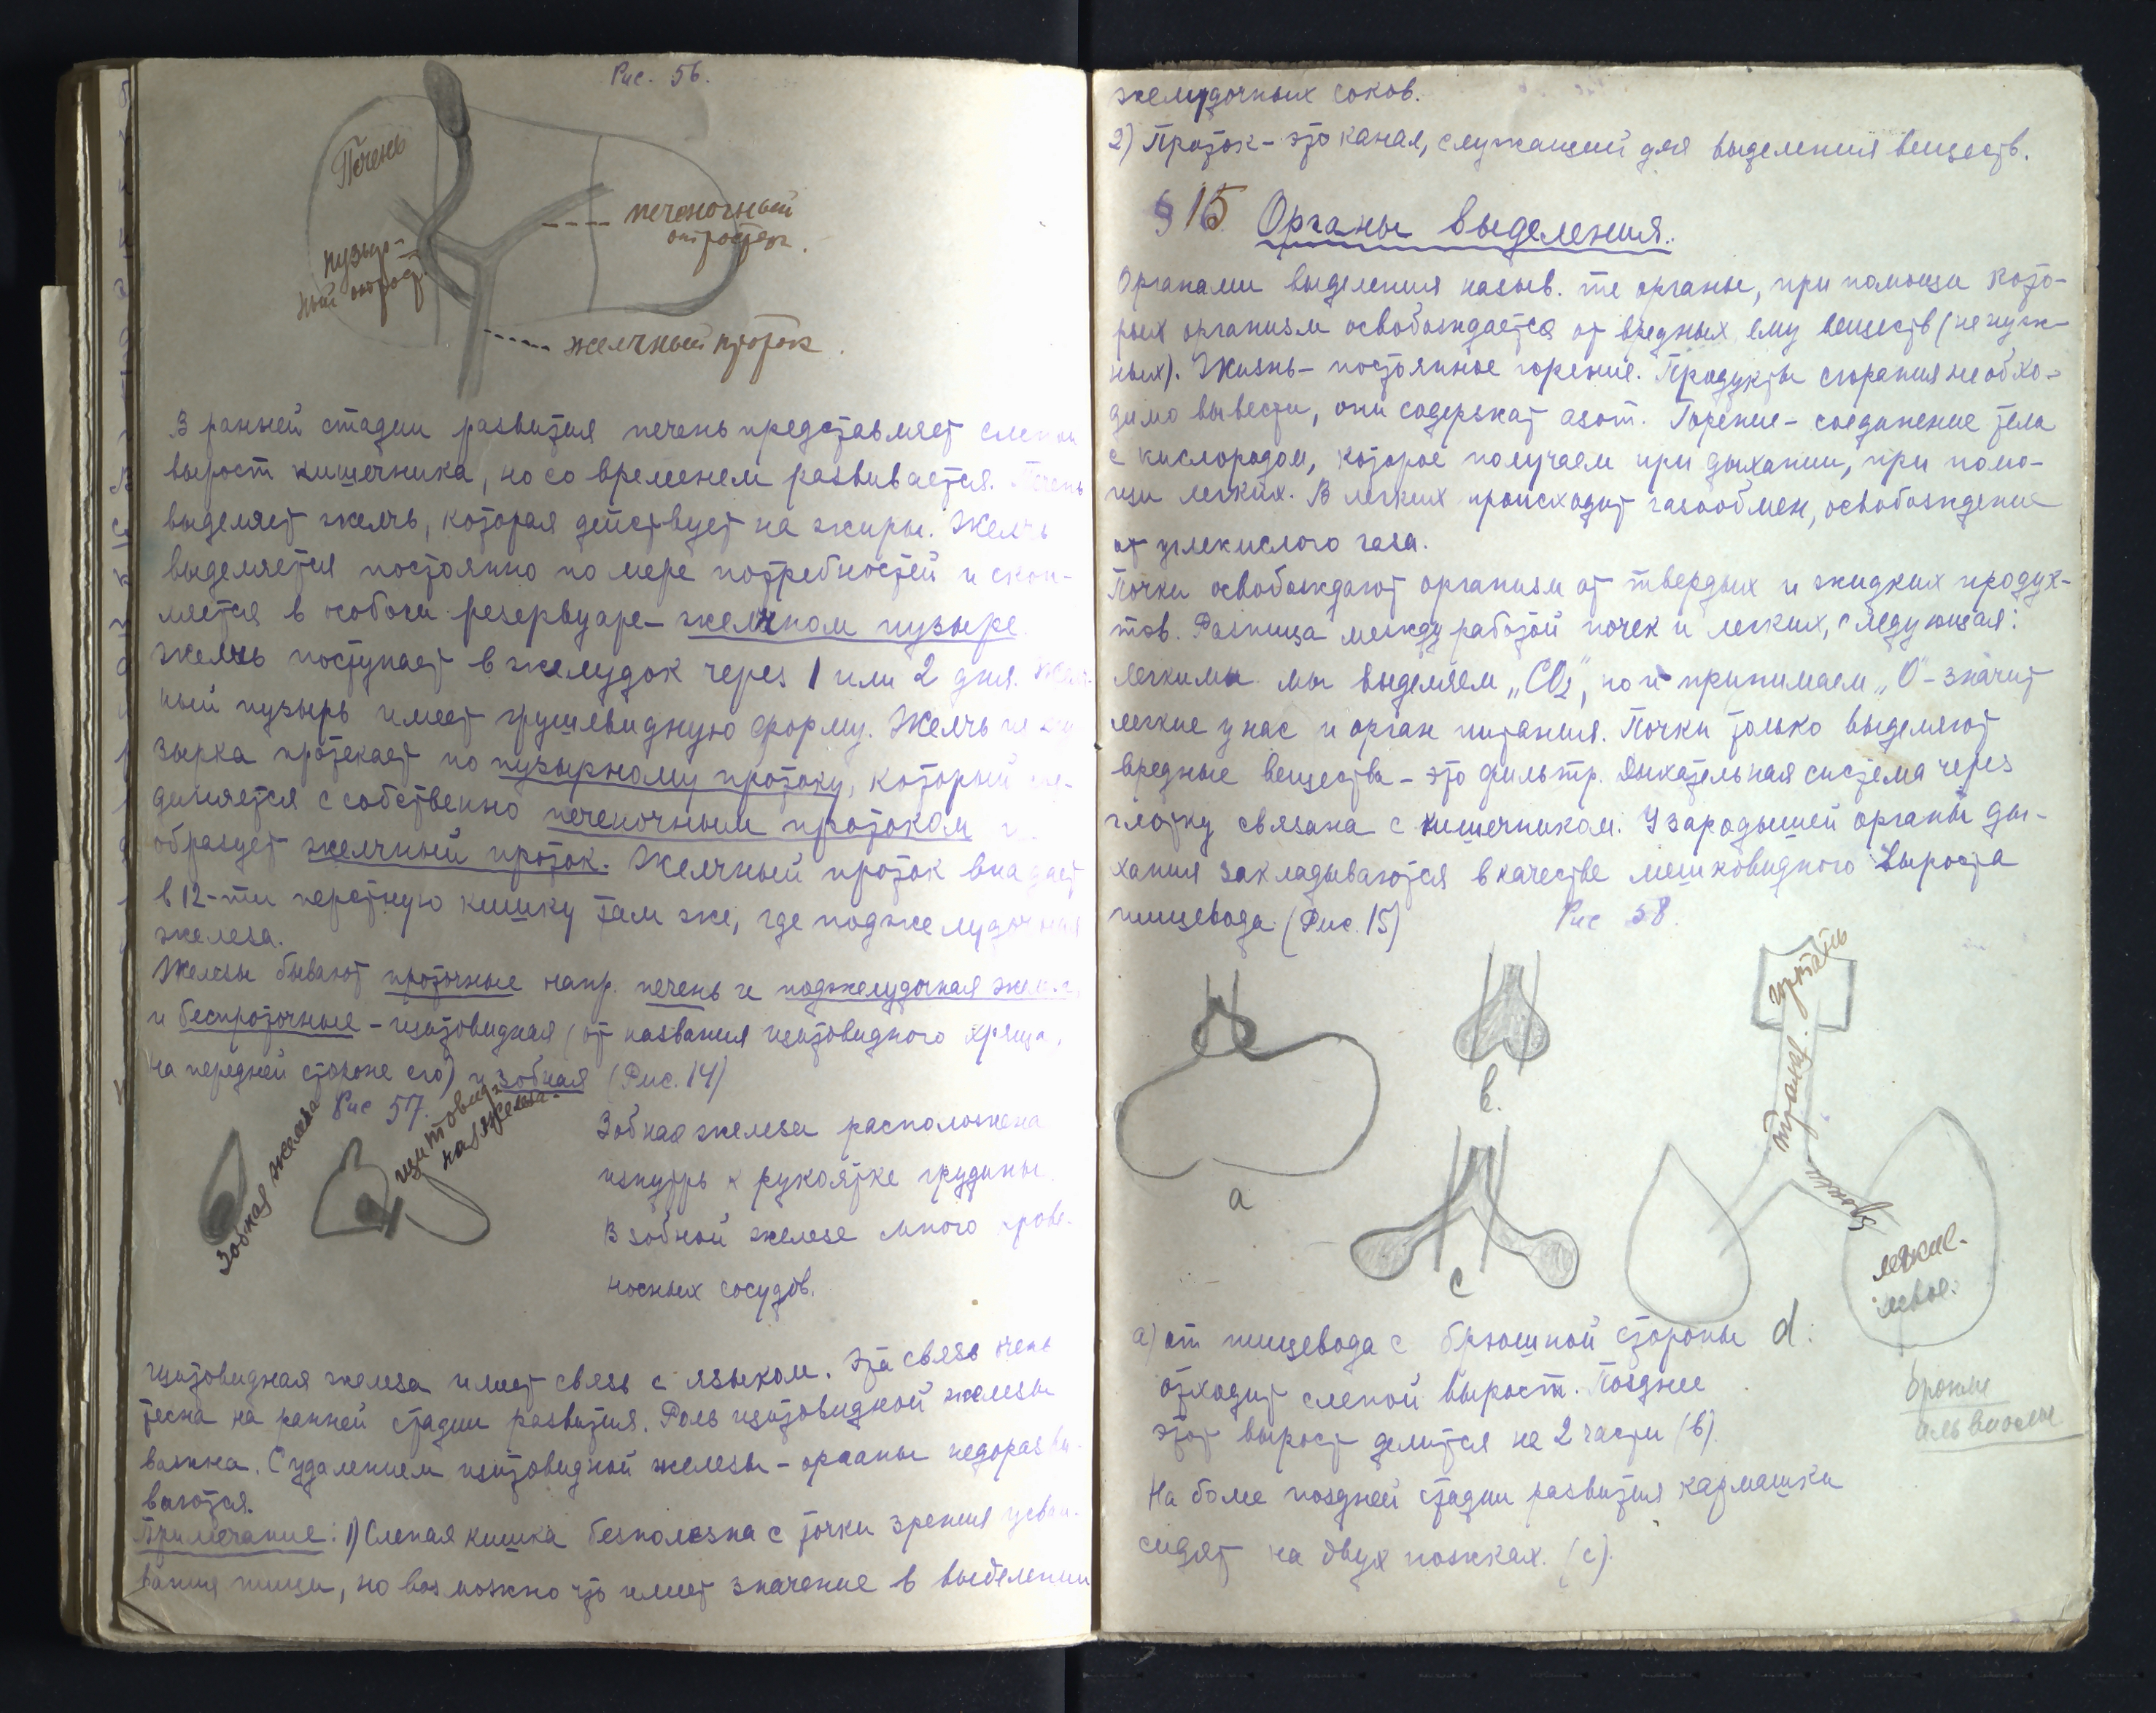 Рис. 56.
Печень
печеночный
отросток.
пузыр-
ный отрост.
желчный проток.
В ранней стадии развития печень представляет слепой
вырост кишечника, но со временем развивается. Печень
выделяет желчь, которая действует на жиры. Желчь
выделяется постоянно по мере потребностей и скоп-
ляется в особом резервуаре – желчном пузыре.
Желчь поступает в желудок через 1 или 2 дня. Желч-
ный пузырь имеет грушевидную форму. Желчь из пу
зырка протекает по пузырному протоку, который сое-
диняется с собственно печеночным протоком и
образует желчный проток. Желчный проток впадает
в 12-ти перстную кишку там же, где поджелудочная
железа.
Железы бывают проточные напр. печень и поджелудочная железа,
и беспроточные – щитовидная (от названия щитовидного хряща,
на передней стороне его) и зобная (Рис. 14)
Рис 57.
Зобная железа
щитовид-
ная железа.
Зобная железа расположена
изнутрь к рукоятке грудины.
В зобной железе много крове-
носных сосудов.
Щитовидная железа имеет связь с языком. Эта связь очень
тесна на ранней стадии развития. Роль щитовидной железы
важна. С удалением щитовидной железы – органы недоразви-
ваются.
Примечание: 1) Слепая кишка бесполезна с точки зрения усваи-
вания пищи, но возможно что имеет значение в выделении
желудочных соков.
2) Проток – это канал, служащий для выделения веществ.
§ 15 Органы выделения.
Органами выделения назыв. те органы, при помощи кото-
рых организм освобождается от вредных ему веществ (ненуж-
ных). Жизнь – постоянное горение. Продукты сгорания необхо-
димо вывести, они содержат азот. Горение – соединение тела
с кислородом, которое получаем при дыхании, при помо-
щи легких. В легких происходит газообмен, освобождение
от углекислого газа.
Почки освобождают организм от твердых и жидких продук-
тов. Разница между работой почек и легких, следующая:
легкими мы выделяем „CO2", но и принимаем „O" – значит
легкие у нас и орган питания. Почки только выделяют
вредные вещества – это фильтр. Дыхательная система через
глотку связана с кишечником. У зародышей органы ды-
хания закладываются в качестве мешковидного выроста
пищевода. (Рис. 15)
Рис 58.
гортань
трахея.
бронхи
легкие.
левое.
a
b.
c
d:
a) от пищевода с брюшной стороны
отходит слепой вырост. Позднее
этот вырост делится на 2 части (b).
На более поздней стадии развития кармашки
сидят на двух ножках. (c).
бронхи
альвиолы